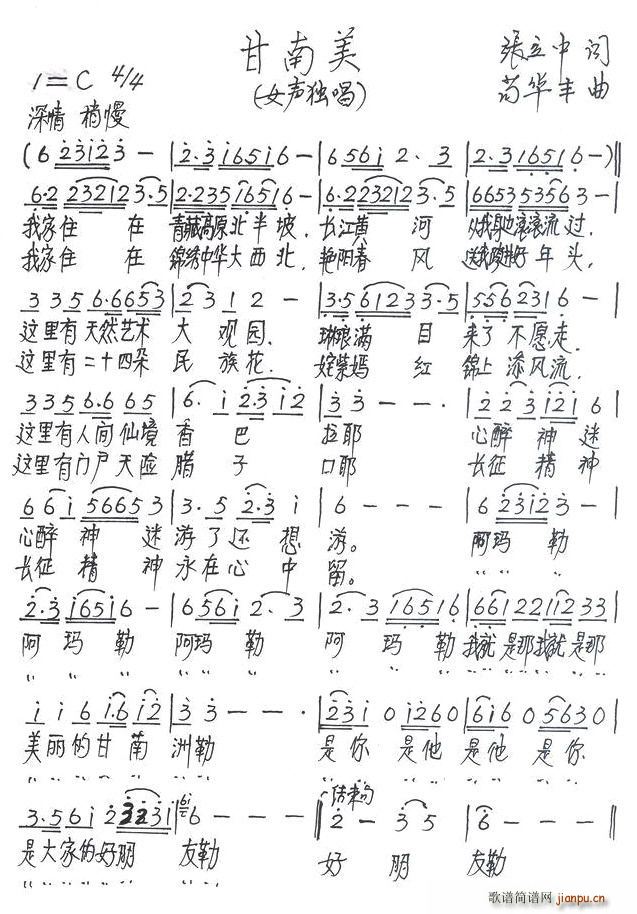 甘南美
(女声独唱)
張立中 词
苟华丰 曲
1=C 4/4
深情 稍慢
(6 2312 3 - | 2·3 1651 6 - | 6 561 2· 3 | 2·3 1651 6 -)||
6·2 232123·5 | 2·235 1651 6 - | 6·2 22321 23·5 | 6653 5356 3 -
我家住 在 青藏高原北半坡, 长江黄 河 滚滚流过,
我家住 在 锦绣中华大西北, 艳阳春 风 年头,
3 35 6·6653 | 2 3 1 2 - | 3·5 6123 3·5 | 5562316 -
这里有天然艺术 大 观园, 琳琅满 目 来了 不愿走,
这里有二十四朵 民 族花, 姹紫嫣 红 锦上 添风流,
3335 6·6 65 | 6· 1 2·3 12 | 3 3 - - | 2 23 121 6
这里有人间仙境 香 巴 拉耶 心醉 神迷
这里有门户天险 腊 子 口耶 长征 精神
6 61 5665 3 | 3· 5 2·3 1 | 6 - - - | 6 2312 3 -
心醉 神 迷 游了还 想 游。 阿玛 勒
长征 精 神 永在心 中 留。 " " "
2·3 1651 6 - | 6 561 2· 3 | 2· 3 1651 6 | 661 22112 33
阿 玛 勒 阿玛 勒 阿 玛 勒 我就是那我就是那
" " " " " " " " "
1 1 6 1·6 12 | 3 3 - - | 231 0 1260 | 616 0 5630
美丽的甘 南 洲勒 是你 是他 是他 是你
3·561 2 32 31 | 6 - - - || 结束句 2 - 3 5 | 6 - - -
是大家的好朋 友勒 好 朋 友勒
歌谱简谱网
jianpu.cn